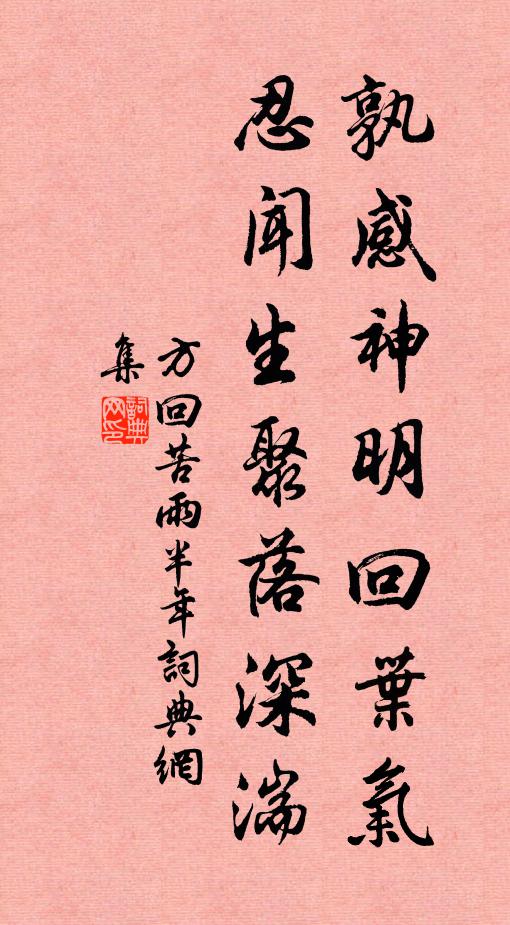 孰感神明回葉氣
忍聞生聚落深湍
方回苦雨半年詞典網
集
詞典
网印